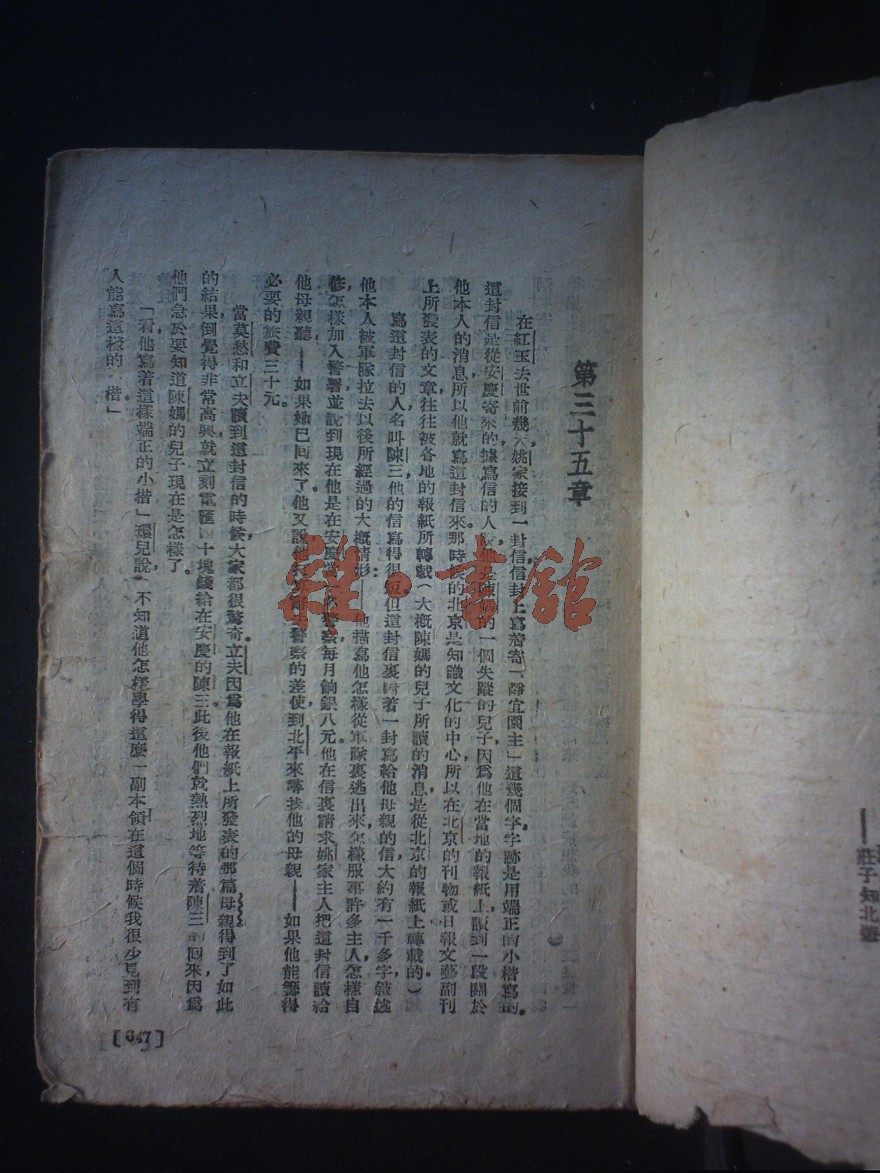 第三十五章
在紅玉去世前幾天姚家接到一封信信封上寫着寄「靜宜園主」這幾個字字跡是用端正的小楷寫的。
這封信是從安慶寄來的據寫信的人說他是陳媽的一個失蹤的兒子因爲他在當地的報紙上讀到一段關於
他本人的消息所以他就寫這封信來。那時候的北京是知識文化的中心所以在北京的刊物或日報文藝副刊
上所發表的文章往往被各地的報紙所轉載（大概陳媽的兒子所讀的消息是從北京的報紙上轉載的）
寫這封信的人名叫陳三他的信寫得很短但這封信裏附着一封寫給他母親的信大約有一千多字敘述
他本人被軍隊拉去以後所經過的大概情形：他描寫他怎樣從軍隊裏逃出來，怎樣服事許多主人怎樣自
修，怎樣加入警署並說到現在他是在安慶當警察，每月餉銀八元。他在信裏請求姚家主人把這封信讀給
他母親聽——如果她已回來了。他又說他警察的差使，到北平來尋找他的母親——如果他能籌得
必要的旅費三十元。
當莫愁和立夫讀到這封信的時候，大家都很驚奇。立夫因爲他在報紙上所發表的那篇母親得到了如此
的結果，倒覺得非常高興，就立刻電匯四十塊錢給在安慶的陳三。此後他們就熱烈地等待着陳三的回來，因爲
他們急於要知道陳媽的兒子現在是怎樣了。
「看他寫着這樣端正的小楷」環兒說，「不知道他怎樣學得這麼一副本領在這個時候我很少見到有
人能寫這樣的小楷」
[647]
莊子知北遊
雜·書館